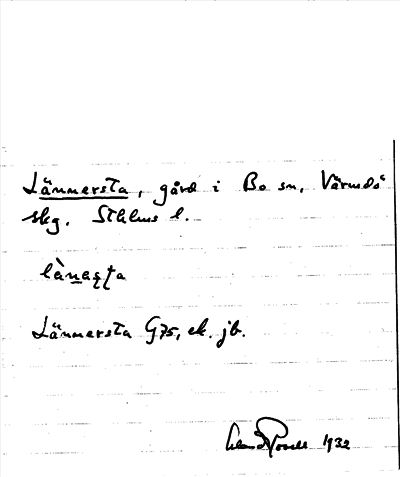 Lännersta, gård i Bo sn, Värmdö
skg. Sthlms l.
lä̀naṣṭa
Lännersta G75, ek. jb.
1932